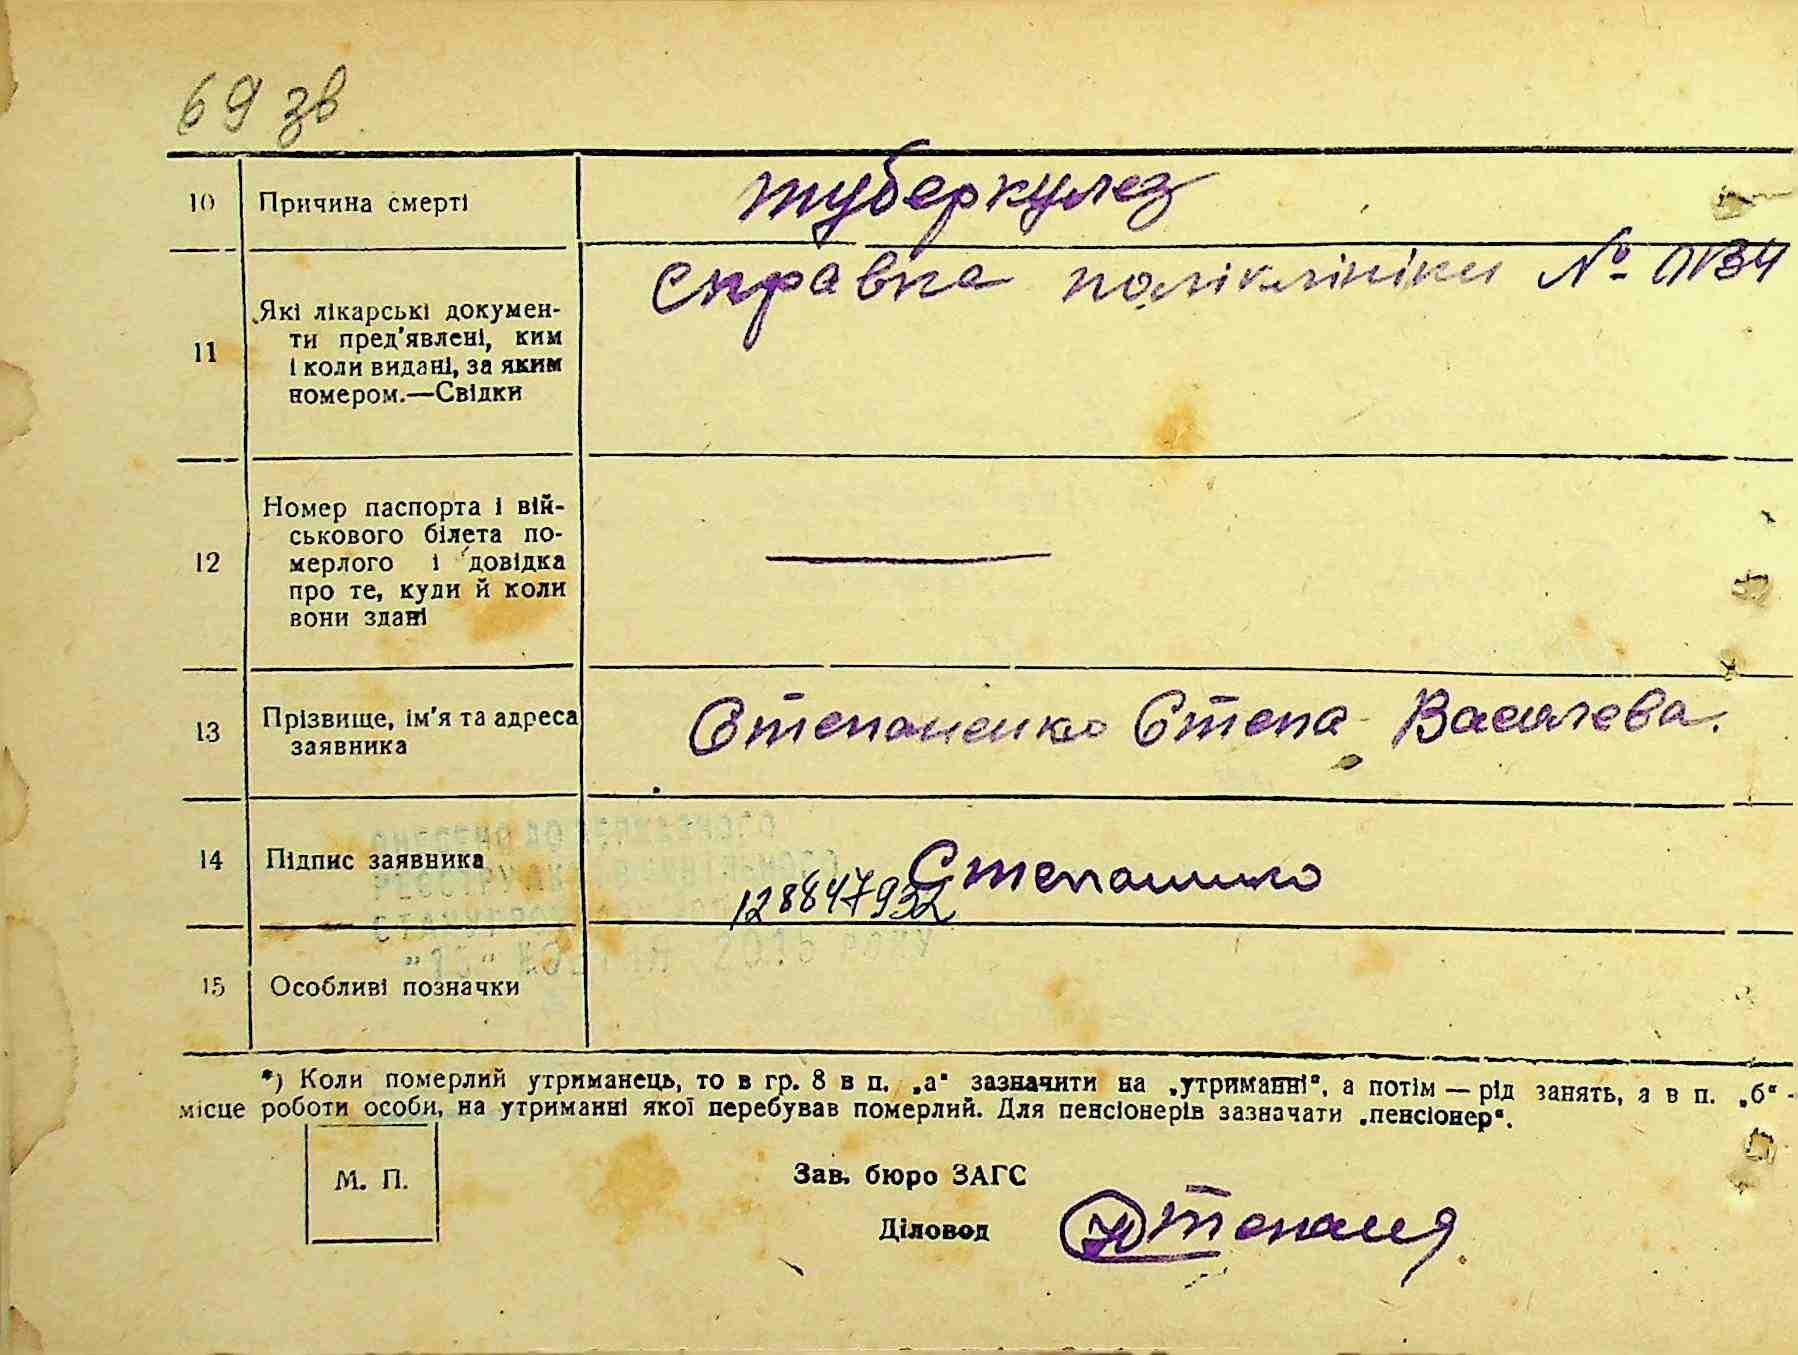 69 зв
10 Причина смерті туберкулез
11 Які лікарські докумен-
ти пред'явлені, ким
і коли видані, за яким
номером.—Свідки
Справка поліклініки №
12 Номер паспорта і вій-
ськового білета по-
мерлого і довідка
про те, куди й коли
вони здані
13 Прізвище, ім'я та адреса
заявника
Степаненко Степа Васілева.
14 Підпис заявника
128847932
ВНЕСЕНО ДО ДЕРЖАВНОГО
РЕЄСТРУ АКТІВ ЦИВІЛЬНОГО
СТАНУ ГРОМАДЯН
РОКУ
15 Особливі позначки
*) Коли померлий утриманець, то в гр. 8 в п. „а“ зазначити на „утриманні“, а потім — рід занять, а в п. „б“ -
місце роботи особи, на утриманні якої перебував померлий. Для пенсіонерів зазначати „пенсіонер“.
М. П.
Зав. бюро ЗАГС
Діловод